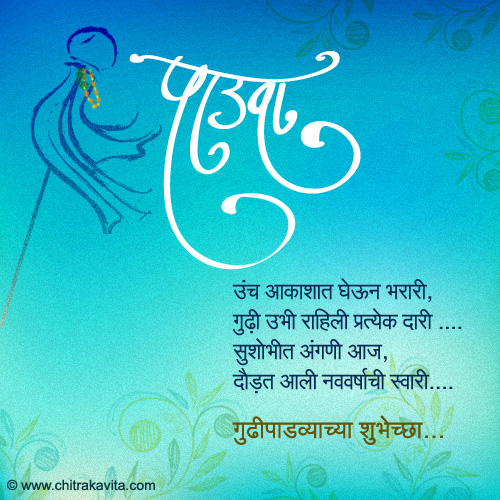 पाडवा
उंच आकाशात घेऊन भरारी,
गुढ़ी उभी राहिली प्रत्येक दारी ....
सुशोभीत अंगणी आज,
दौड़त आली नववर्षाची स्वारी....
गुढीपाडव्याच्या शुभेच्छा...
© www.chitrakavita.com